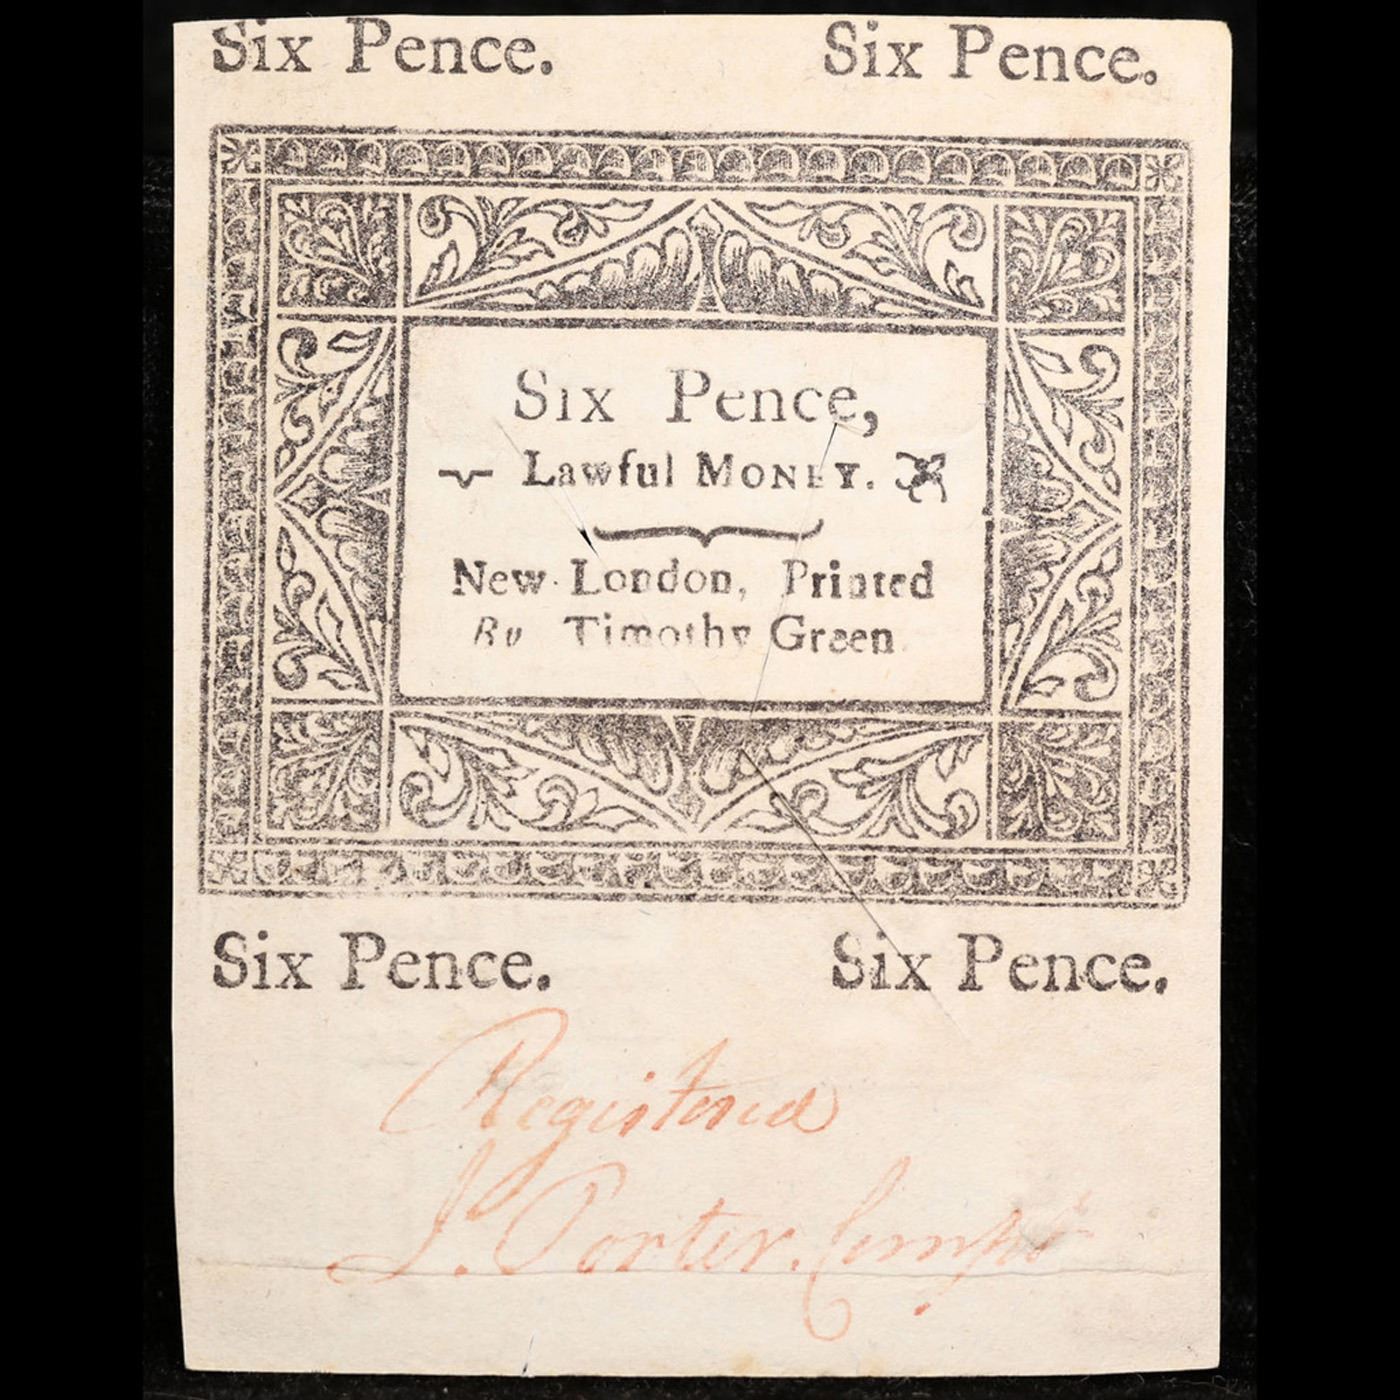 Six Pence. Six Pence.
Six Pence,
Lawful MONEY.
New London, Printed
By Timothy Green
Six Pence. Six Pence.
Registered
J. Porter. Compt